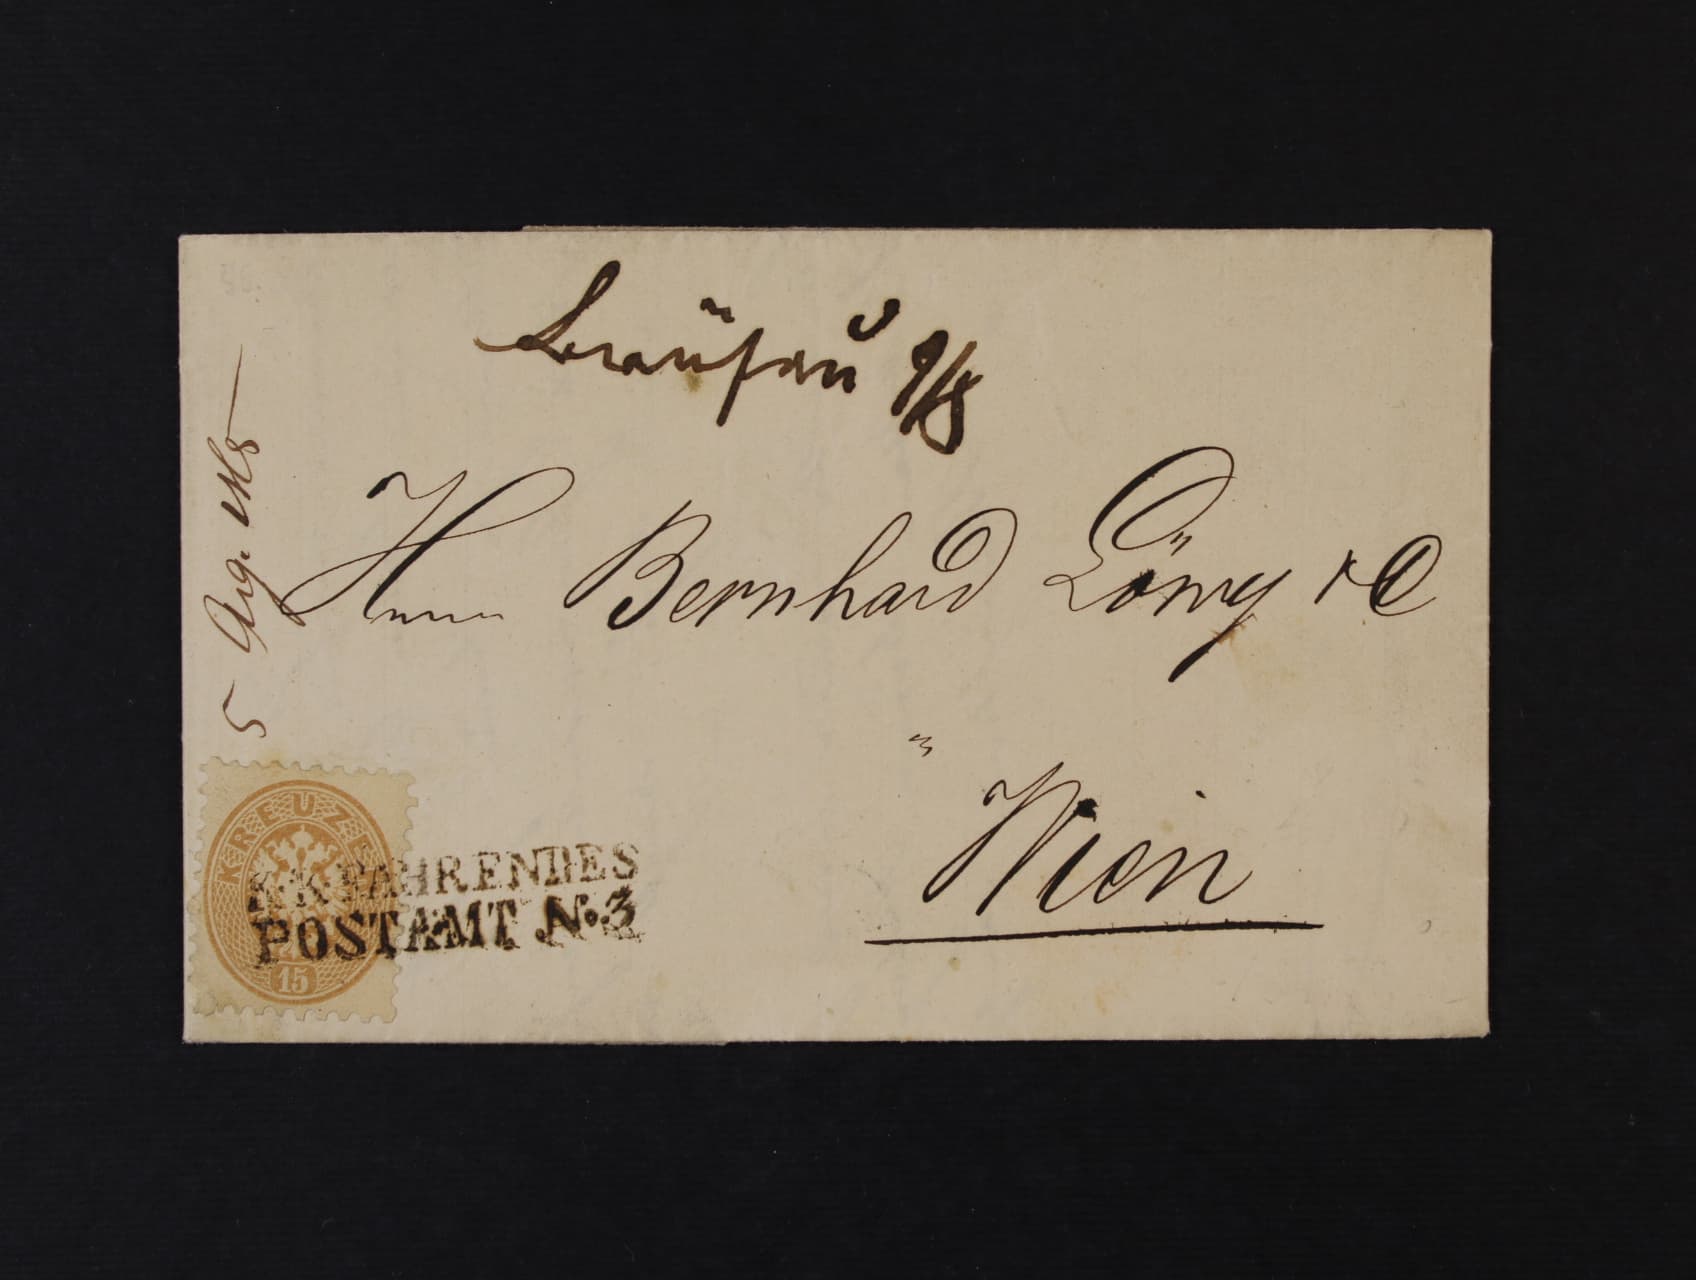 Bräusau 9/8
Herrn Bernhard Löwy & C
Wien
5 Aug.
KREUZER
15
K.K. FAHRENDES
POSTAMT No. 3